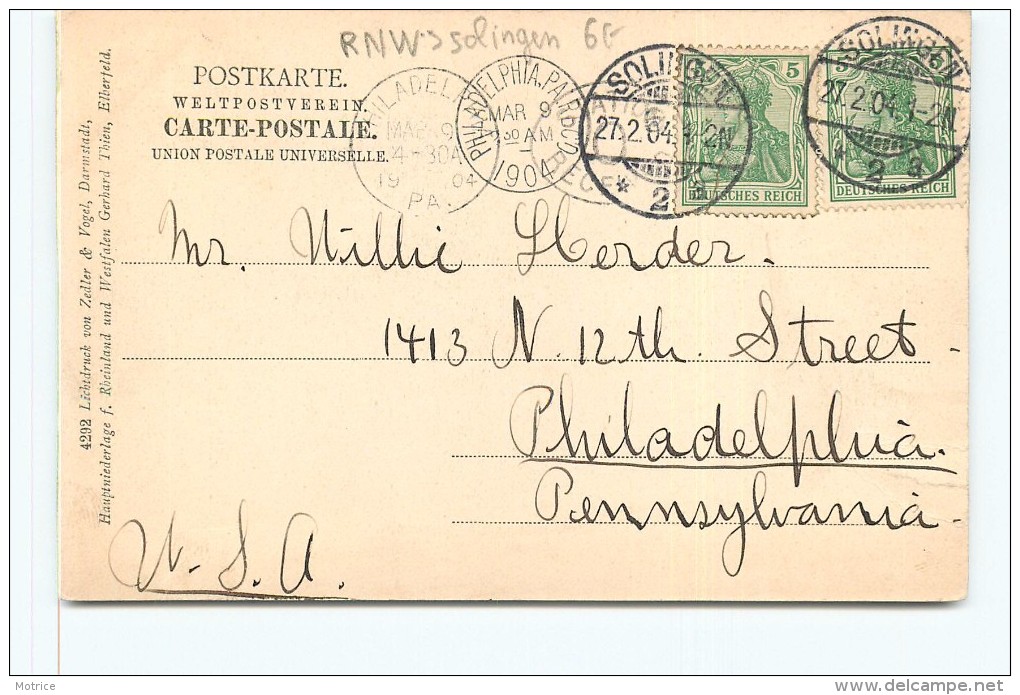 RNW > solingen 6€
POSTKARTE.
WELTPOSTVEREIN.
CARTE-POSTALE.
UNION POSTALE UNIVERSELLE.
MAR 9
4-30A
19 04
PA.
PHILADELPHIA, PA.
MAR 9
30 AM
1904
REC'D
SOLINGEN
27.2.04.1-2N
* 2 a
5
DEUTSCHES REICH
SOLINGEN
27.2.04.1-2N
* 2 a
5
DEUTSCHES REICH
Mr. Willie Herder.
1413 N. 12th. Street.
Philadelphia.
Pennsylvania.
U. S. A.
4292 Lichtdruck von Zedler & Vogel, Darmstadt,
Hauptniederlage f. Rheinland und Westfalen Gerhard Thien, Elberfeld.
Motrice
delcampe.net